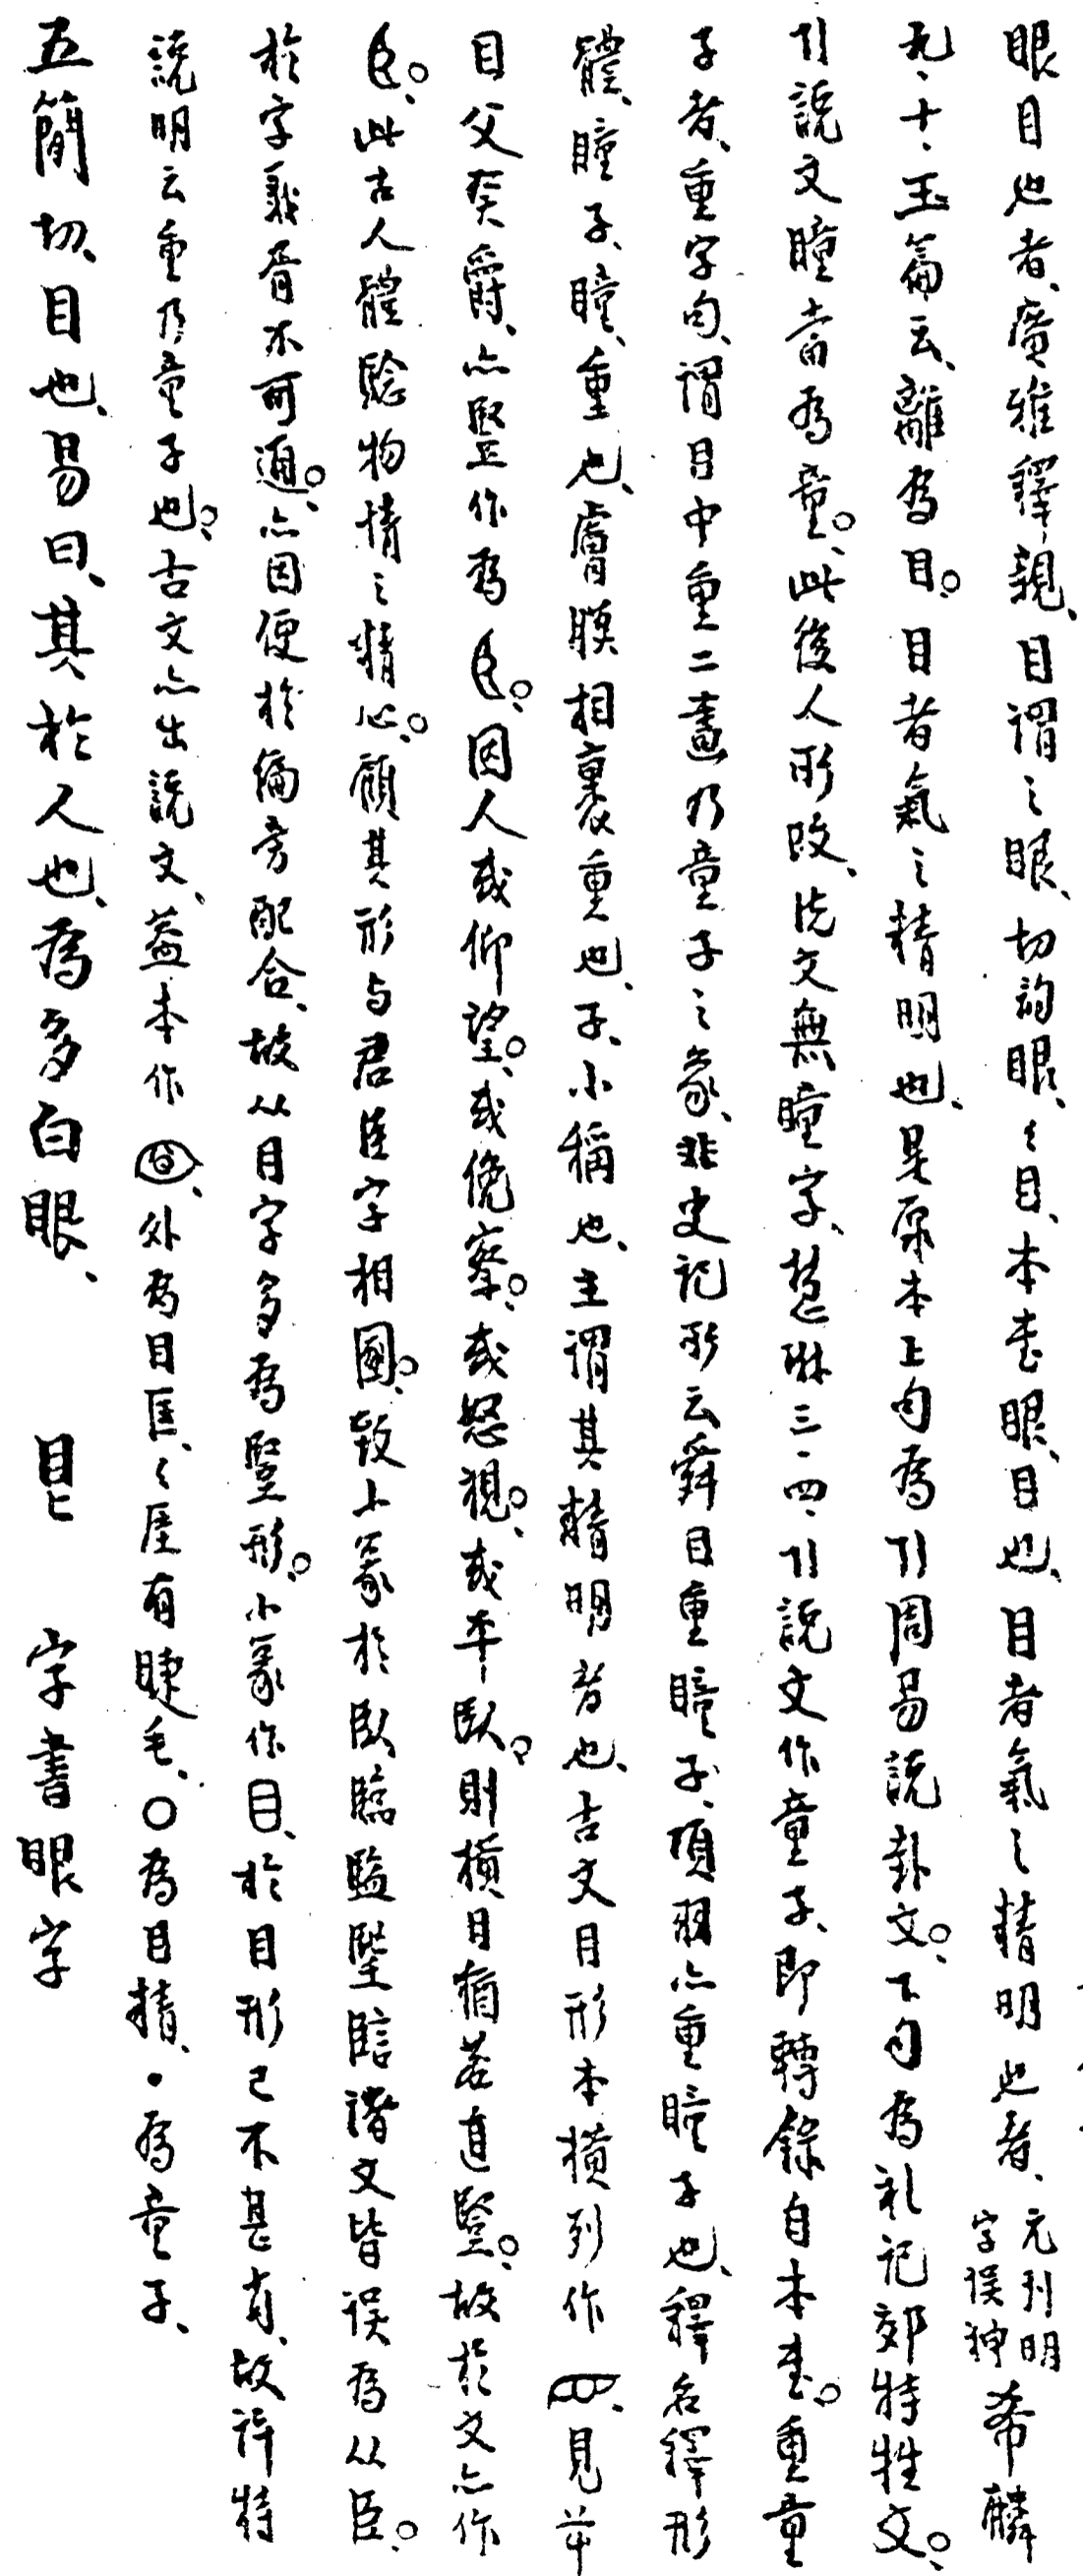 眼目也者、廣雅釋親、目謂之眼、切韵眼、〻目、本書眼、目也、目者氣之精明也者、元刊明字误神希麟
九、十、玉篇云、離為目。目者氣之精明也、是原本上句為引周易説卦文。下句為礼记郊特牲文。
引説文瞳當為童。此後人所改、説文無瞳字、慧琳三、四、引説文作童子、即轉錄自本書。重童
子者、重字句、謂目中重二畫乃童子之象、非史记所云舜目重瞳子、項羽亦重瞳子也、釋名釋形
體、瞳子、瞳、重也、膚膜相裹重也、子、小稱也、主謂其精明者也、古文目形本横列作、見芊
目父癸爵、亦竪作為。因人或仰望。或俛察。或怒視。或平臥。則横目猶若直竪。故於文亦作
。此古人體騐物情之精心。顧其形与君臣字相圂。致小篆於臥、臨監堅䀬諸文皆误為从臣。
於字義胥不可通。亦因便於偏旁配合、故从目字多為竪形。小篆作目、於目形已不甚肖、故許特
説明云重乃童子也。古文亦出説文、蓋本作、外為目匡、〻厓有睫毛、〇為目精、・為童子、
五簡切、目也、易曰、其於人也、為多白眼、 字書眼字